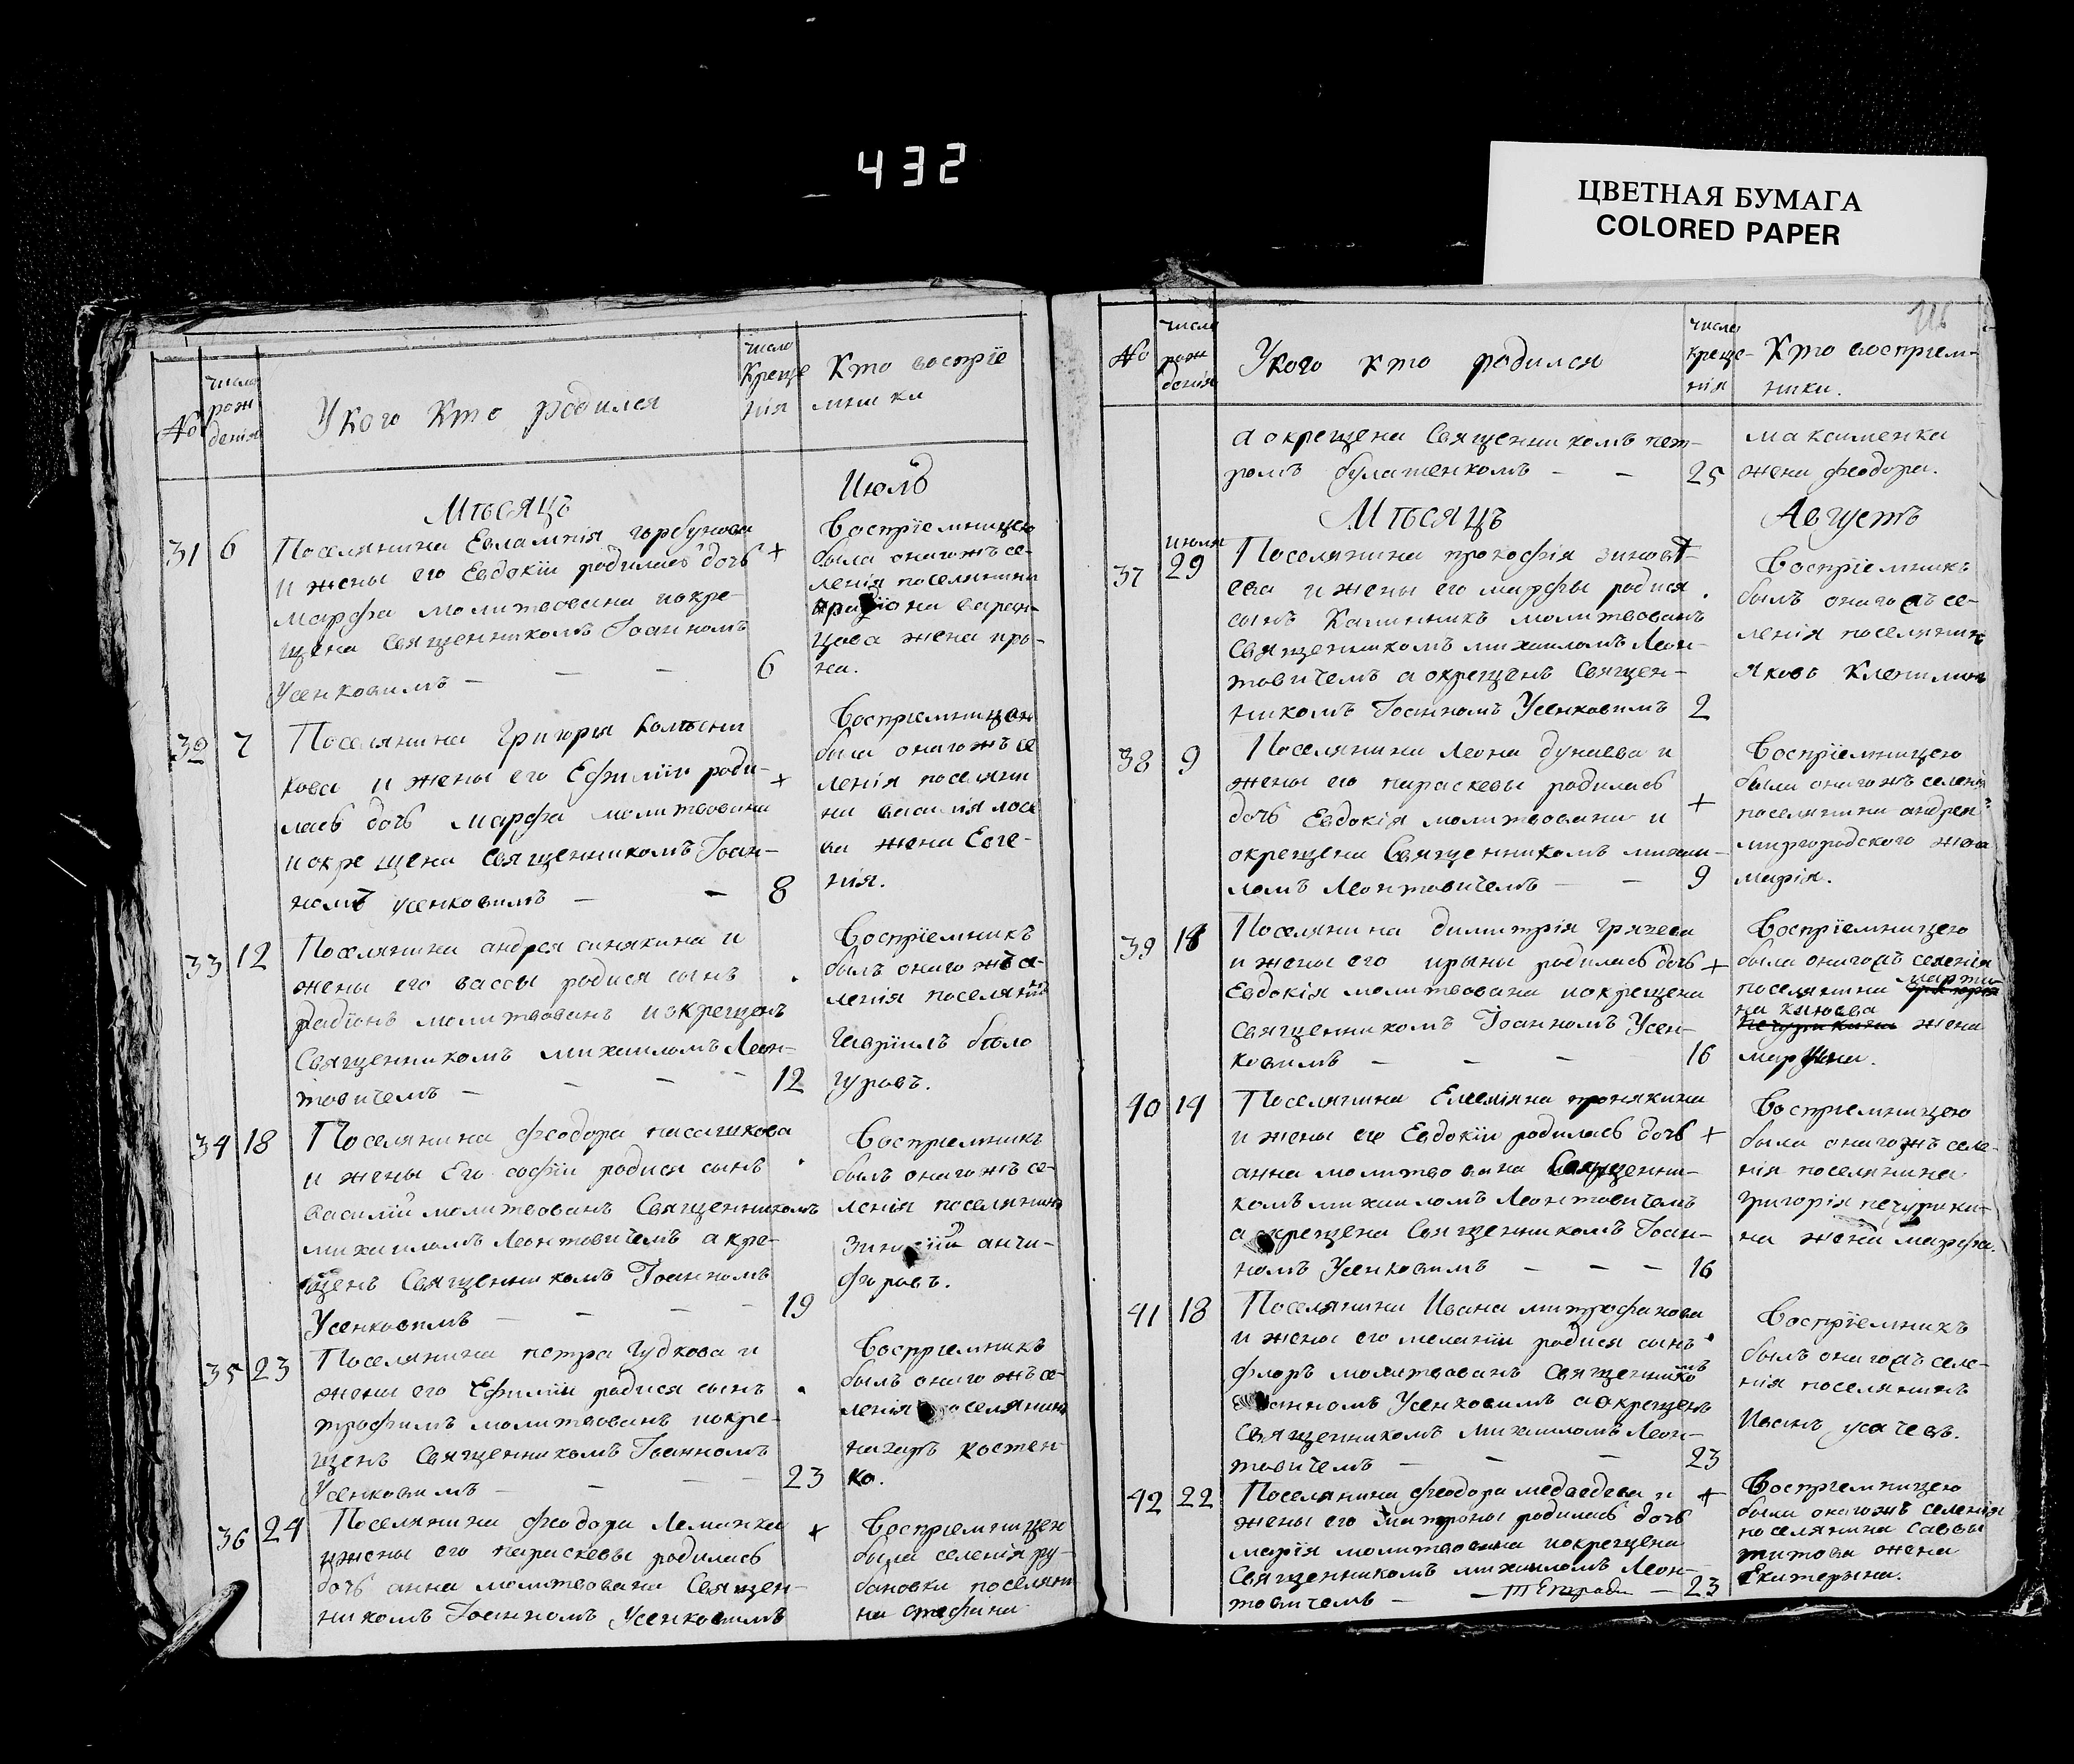 432
ЦВЕТНАЯ БУМАГА
COLORED PAPER
№
число рож денія
У кого кто родился
число Креще нія
Кто воспріе мники
Мѣсяцъ
Июль
31 6
Поселянина Евлампія горбунова
и жены его Евдокіи родилась дочь +
марфа молитвована и окре-
щена священникомъ Іоанномъ
Усенковимъ — — — 6
Воспріемницею
была оногожъ се-
ленія поселянина
варон-
цова жена
32 7
Поселянина Григория
кова и жены его Ефиміи роди- +
лась дочь марфа молитвована
и окрещена священникомъ Іоан-
номъ усенковимъ — — 8
Воспріемницею
была оногожъ се
ленія поселяни
на василія лосе
ва жена Евге-
нія.
33 12
Поселянина андрея синякина и
жены его вассы родися сынъ .
радіонъ молитвованъ и окрещенъ
Священникомъ михаиломъ Леон-
товичемъ — — — — 12
Воспріемникъ
былъ оногожъ се-
ленія поселянинъ
Гавріилъ было
гуровъ.
34 18
Поселянина феодора пасашкова
и жены Его софіи родися сынъ .
василій молитвованъ Священникомъ
михаиломъ Леонтовичемъ а кре-
щенъ Священникомъ Іоанномъ
Усенковимъ — — — 19
Воспріемникъ
былъ оногожъ се-
ленія поселянинъ
анти-
форовъ.
35 23
Поселянина петра гудкова и
жены его Ефиміи родися сынъ .
трофимъ молитвованъ и окре-
щенъ Священникомъ Іоанномъ
Усенковимъ — — — 23
Воспріемникъ
былъ оногожъ се-
ленія поселянинъ
назаръ костен-
ко.
36 24
Поселянина феодора Леманка +
и жены его параскевы родилась
дочь анна молитвована Священ-
никомъ Іоанномъ Усенковимъ
Воспріемницею
была селенія ру-
бановки поселяни
на стефана
116
№
число рож денія
У кого кто родился
число креще- нія
Кто воспріем- ники.
а окрещена Священникомъ пет-
ромъ булатенкомъ — — 25
максименка
жена феодора.
Мѣсяцъ
Августъ
июля
37 29
Поселянина прокофія зиновь
ева и жены его марфы родися .
сынъ Калиникъ молитвованъ
Священникомъ михаиломъ Леон-
товичемъ а окрещенъ Священ-
никомъ Іоанномъ Усенковимъ 2
Воспріемникъ
былъ оногожъ се-
ленія поселянинъ
Яковъ
38 9
Поселянина Леона дунаева и
жены его параскевы родилась
дочь Евдокія молитвована и +
окрещена Священникомъ михаи-
ломъ Леонтовичемъ — — 9
Воспріемницею
была оногожъ селенія
поселянина андрея
миргородского жена
марія.
39 18
Поселянина димитрія грязева
и жены его ирыны родилась дочь +
Евдокія молитвована и окрещена
священникомъ Іоанномъ Усен-
ковимъ — — — 16
Воспріемницею
была оногожъ селенія
поселянина марти-
на князева жена
40 14
Поселянина Емеліяна пронякина
и жены его Евдокіи родилась дочь +
анна молитвована Священни-
комъ михаиломъ Леонтовичемъ
а окрещена Священникомъ Іоан-
номъ Усенковимъ — — — 16
Воспріемницею
была оногожъ селе-
нія поселянина
григорія печурики-
на жена марфа.
41 18
Поселянина Ивана митрофанова
и жены его меланіи родися сынъ .
флоръ молитвованъ Священникомъ
Іоанномъ Усенковимъ а окрещенъ
Священникомъ михаиломъ Леон-
товичемъ — — — 23
Воспріемникъ
былъ оногожъ селе-
нія поселянинъ
Иванъ усачевъ.
42 22
Поселянина феодора медведева и +
жены его матроны родилась дочь
марія молитвована и окрещена
Священникомъ михаиломъ Леон-
товичемъ — — 23
Воспріемницею
была оногожъ селенія
поселянина саввы
титова жена
Екатерына.